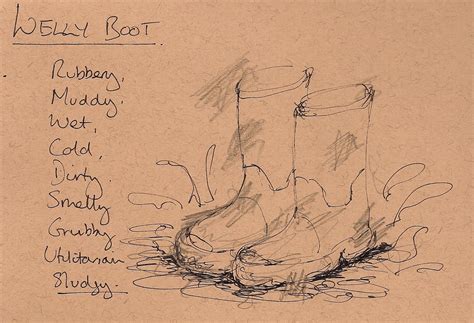 WELLY BOOT.
Rubbery,
Muddy.
Wet,
Cold,
Dirty.
Smelly
Grubby
Utilitarian
Sludgy.